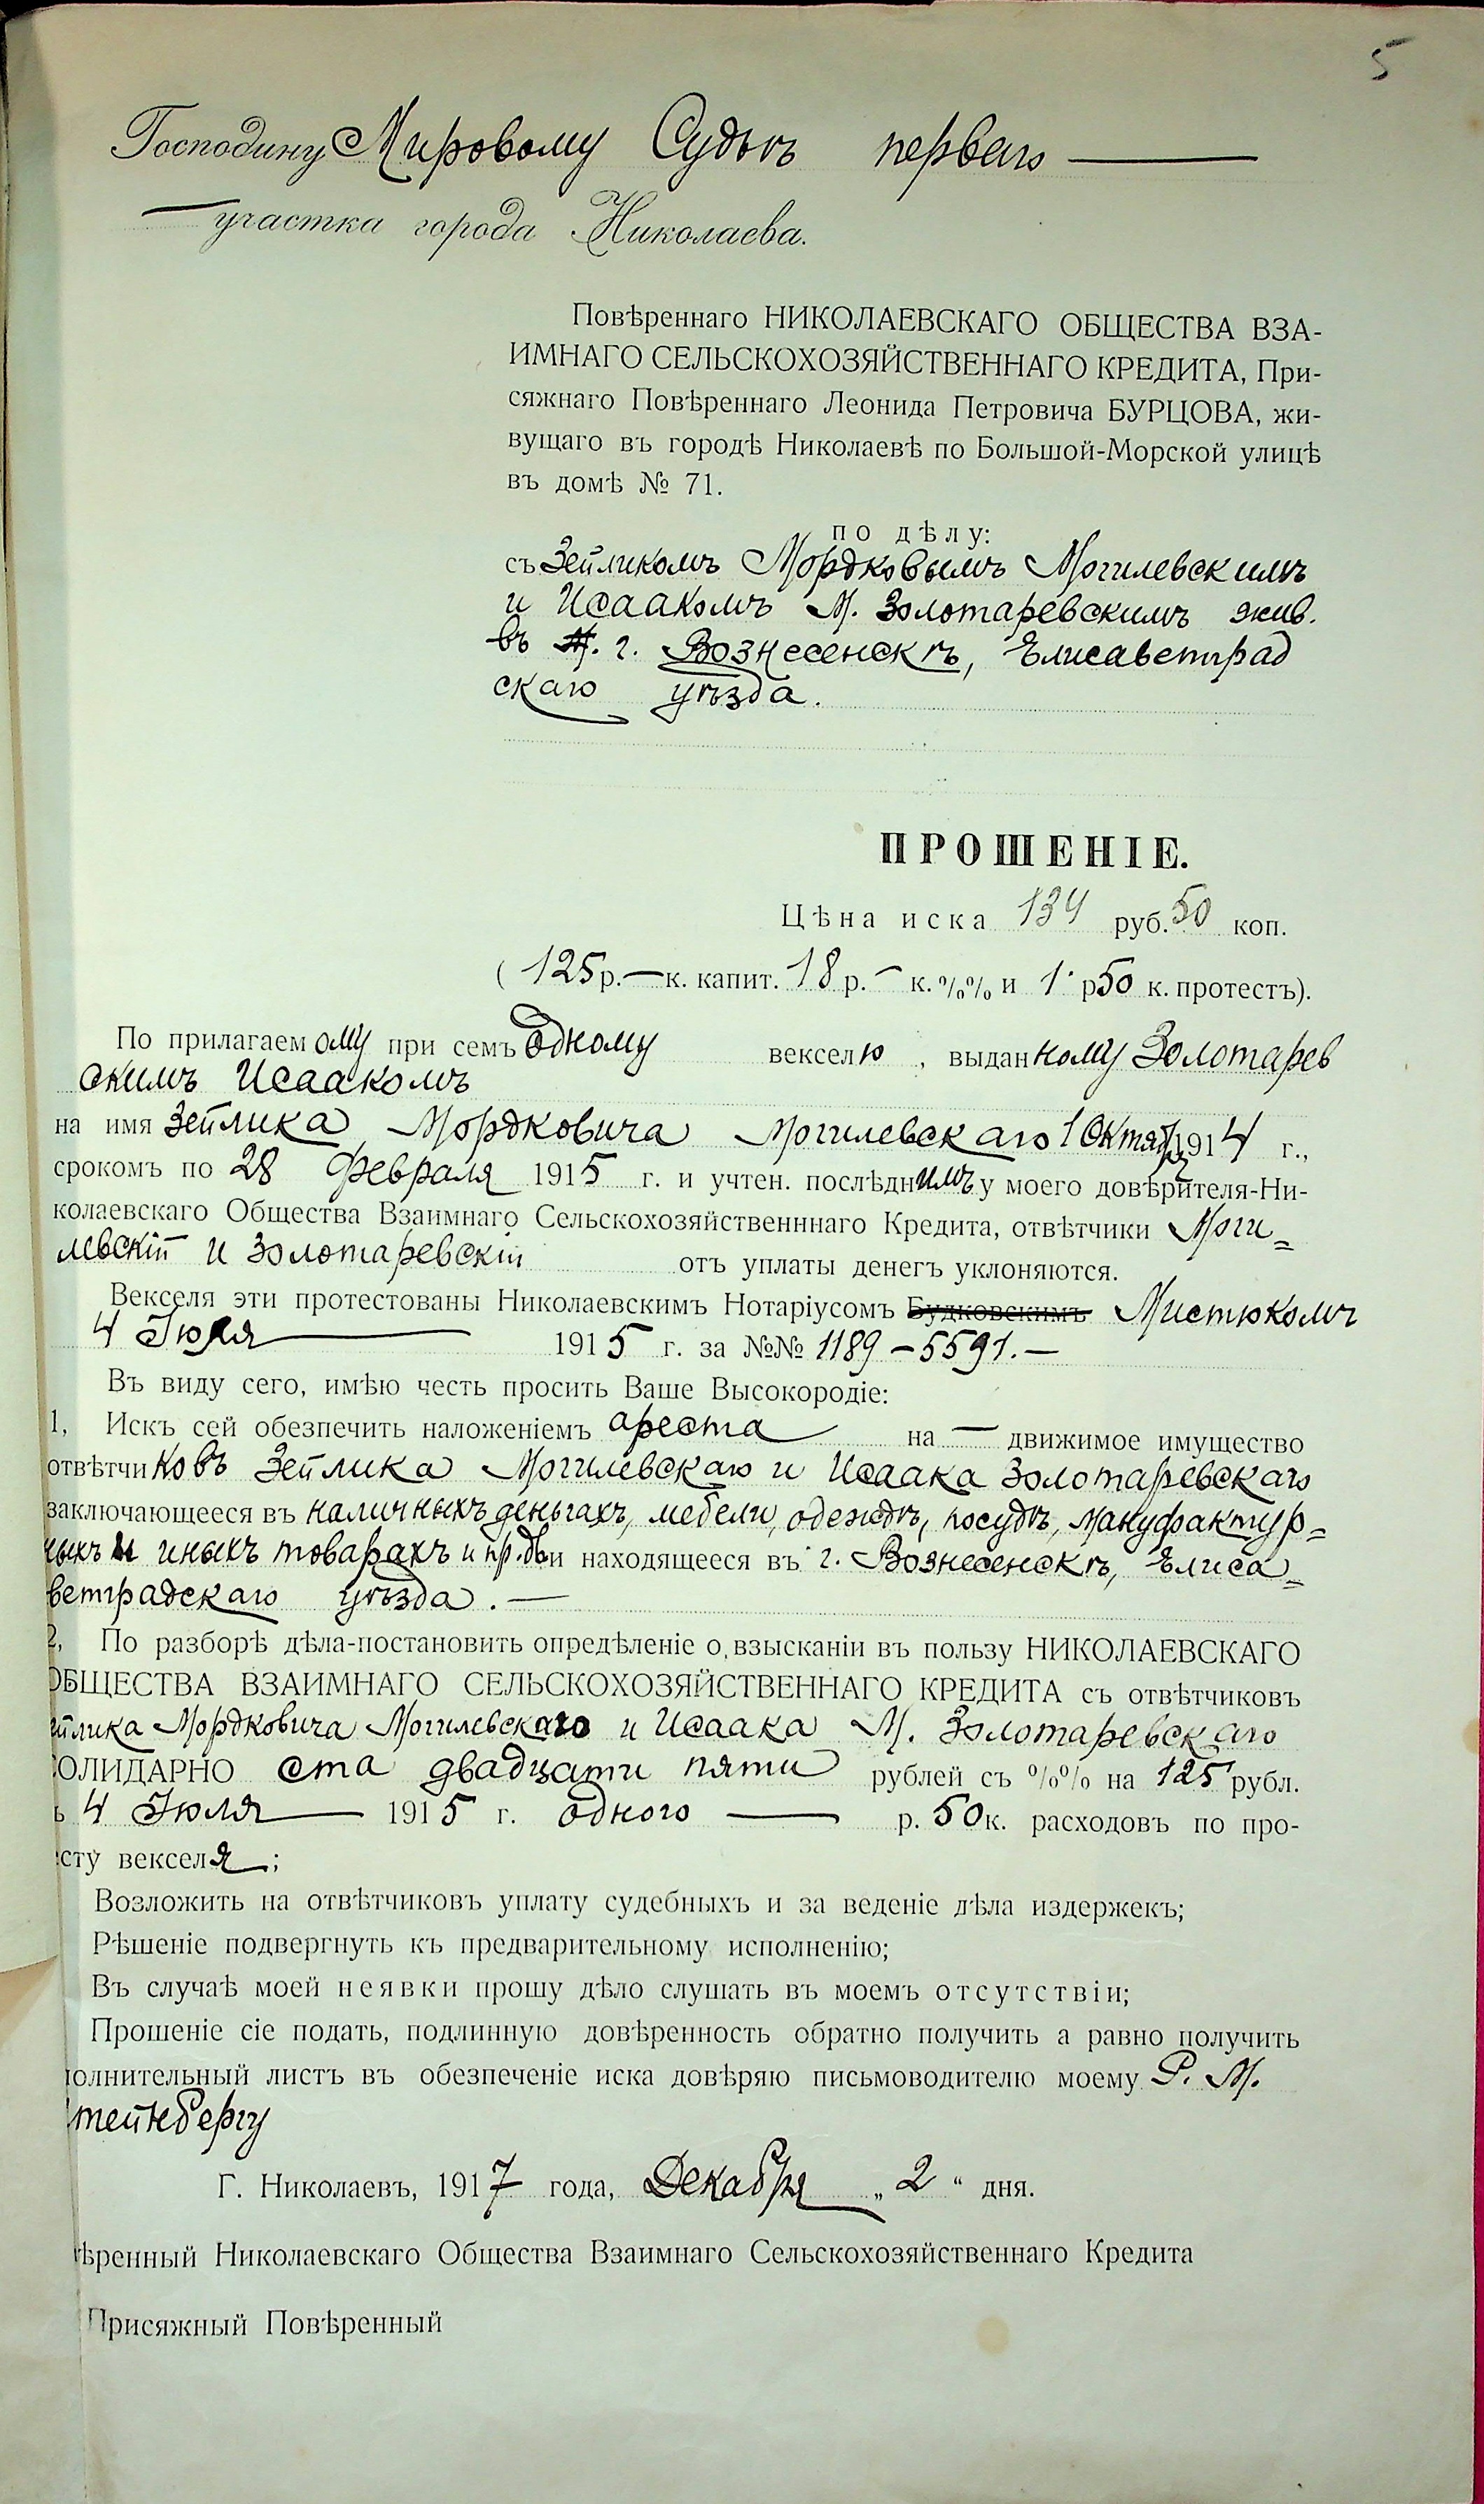 5
Господину Мировому Судьѣ перваго
участка города Николаева.
Повѣреннаго НИКОЛАЕВСКАГО ОБЩЕСТВА ВЗА-
ИМНАГО СЕЛЬСКОХОЗЯЙСТВЕННАГО КРЕДИТА, При-
сяжнаго Повѣреннаго Леонида Петровича БУРЦОВА, жи-
вущаго въ городѣ Николаевѣ по Большой-Морской улицѣ
въ домѣ № 71.
по дѣлу:
съ Зейликомъ Мордковымъ Могилевскимъ
и Исаакомъ М. Золотаревскимъ жив.
въ г. Вознесенскѣ, Елисаветград
скаго уѣзда.
ПРОШЕНІЕ.
Цѣна иска 134 руб. 50 коп.
( 125 р. — к. капит. 18 р. — к. %% и 1 р 50 к. протестъ).
По прилагаемому при семъ одному векселю , выданному Золотарев
скимъ Исаакомъ
на имя Зейлика Мордковича Могилевскаго 1 Октября 1914 г.,
срокомъ по 28 Февраля 1915 г. и учтен. послѣднимъ у моего довѣрителя-Ни-
колаевскаго Общества Взаимнаго Сельскохозяйственннаго Кредита, отвѣтчики Моги=
левскій и Золотаревскій отъ уплаты денегъ уклоняются.
Векселя эти протестованы Николаевскимъ Нотаріусомъ Будковскимъ Мистюкомъ
4 Іюля 1915 г. за №№ 1189 – 5591. —
Въ виду сего, имѣю честь просить Ваше Высокородіе:
1, Искъ сей обезпечить наложеніемъ ареста на — движимое имущество
отвѣтчиковъ Зейлика Могилевскаго и Исаака Золотаревскаго
заключающееся въ наличныхъ деньгахъ, мебели, одеждѣ, посудѣ, мануфактур=
ныхъ и иныхъ товарахъ и пр. дв и находящееся въ г. Вознесенскѣ, Елиса=
ветградскаго уѣзда. —
2, По разборѣ дѣла-постановить опредѣленіе о взысканіи въ пользу НИКОЛАЕВСКАГО
ОБЩЕСТВА ВЗАИМНАГО СЕЛЬСКОХОЗЯЙСТВЕННАГО КРЕДИТА съ отвѣтчиковъ
йлика Мордковича Могилевскаго и Исаака М. Золотаревскаго
СОЛИДАРНО ста двадцати пяти рублей съ %% на 125 рубл.
ъ 4 Іюля 1915 г. одного р. 50 к. расходовъ по про-
сту векселя;
Возложить на отвѣтчиковъ уплату судебныхъ и за веденіе дѣла издержекъ;
Рѣшеніе подвергнуть къ предварительному исполненію;
Въ случаѣ моей неявки прошу дѣло слушать въ моемъ отсутствіи;
Прошеніе сіе подать, подлинную довѣренность обратно получить а равно получить
полнительный листъ въ обезпеченіе иска довѣряю письмоводителю моему Р. М.
тейнбергу
Г. Николаевъ, 1917 года, Декабря „ 2 “ дня.
ѣренный Николаевскаго Общества Взаимнаго Сельскохозяйственнаго Кредита
Присяжный Повѣренный